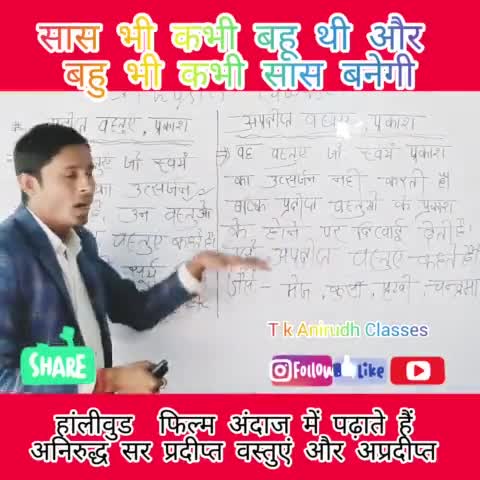 सास भी कभी बहू थी और
बहु भी कभी सास बनेगी
प्रदीप्त वस्तुएं, प्रकाश
अप्रदीप्त वस्तुएं, प्रकाश
वस्तुएं जो स्वयं
का उत्सर्जन
उन वस्तुओं
वस्तुएं कहते हैं
सूर्य
वह वस्तुएं जो स्वयं प्रकाश
का उत्सर्जन नहीं करती हैं
प्रदीप्त वस्तुओं के प्रकाश
के होने पर दिखाई देती हैं।
अप्रदीप्त वस्तुएं कहते हैं
जैसे - मेज, कुर्सी, पृथ्वी, चन्द्रमा
T k Anirudh Classes
SHARE
Follow
Like
हांलीवुड फिल्म अंदाज में पढ़ाते हैं
अनिरुद्ध सर प्रदीप्त वस्तुएं और अप्रदीप्त